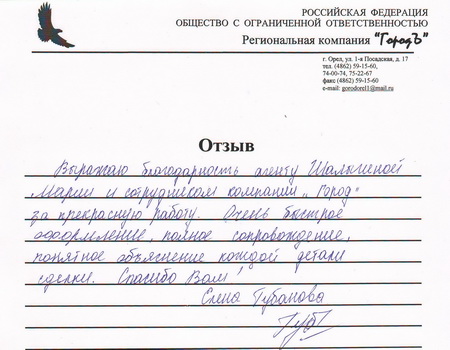 РОССИЙСКАЯ ФЕДЕРАЦИЯ
ОБЩЕСТВО С ОГРАНИЧЕННОЙ ОТВЕТСТВЕННОСТЬЮ
Региональная компания "ГородЪ"
г. Орел, ул. 1-я Посадская, д. 17
тел. (4862) 59-15-60,
74-00-74, 75-22-67
факс (4862) 59-15-60
e-mail: gorodorel1@mail.ru
Отзыв
Выражаю благодарность агенту Шалыгиной
Марии и сотрудникам компании „Город"
за прекрасную работу. Очень быстрое
оформление, полное сопровождение,
понятное объяснение каждой детали
сделки. Спасибо Вам!
Елена Губанова